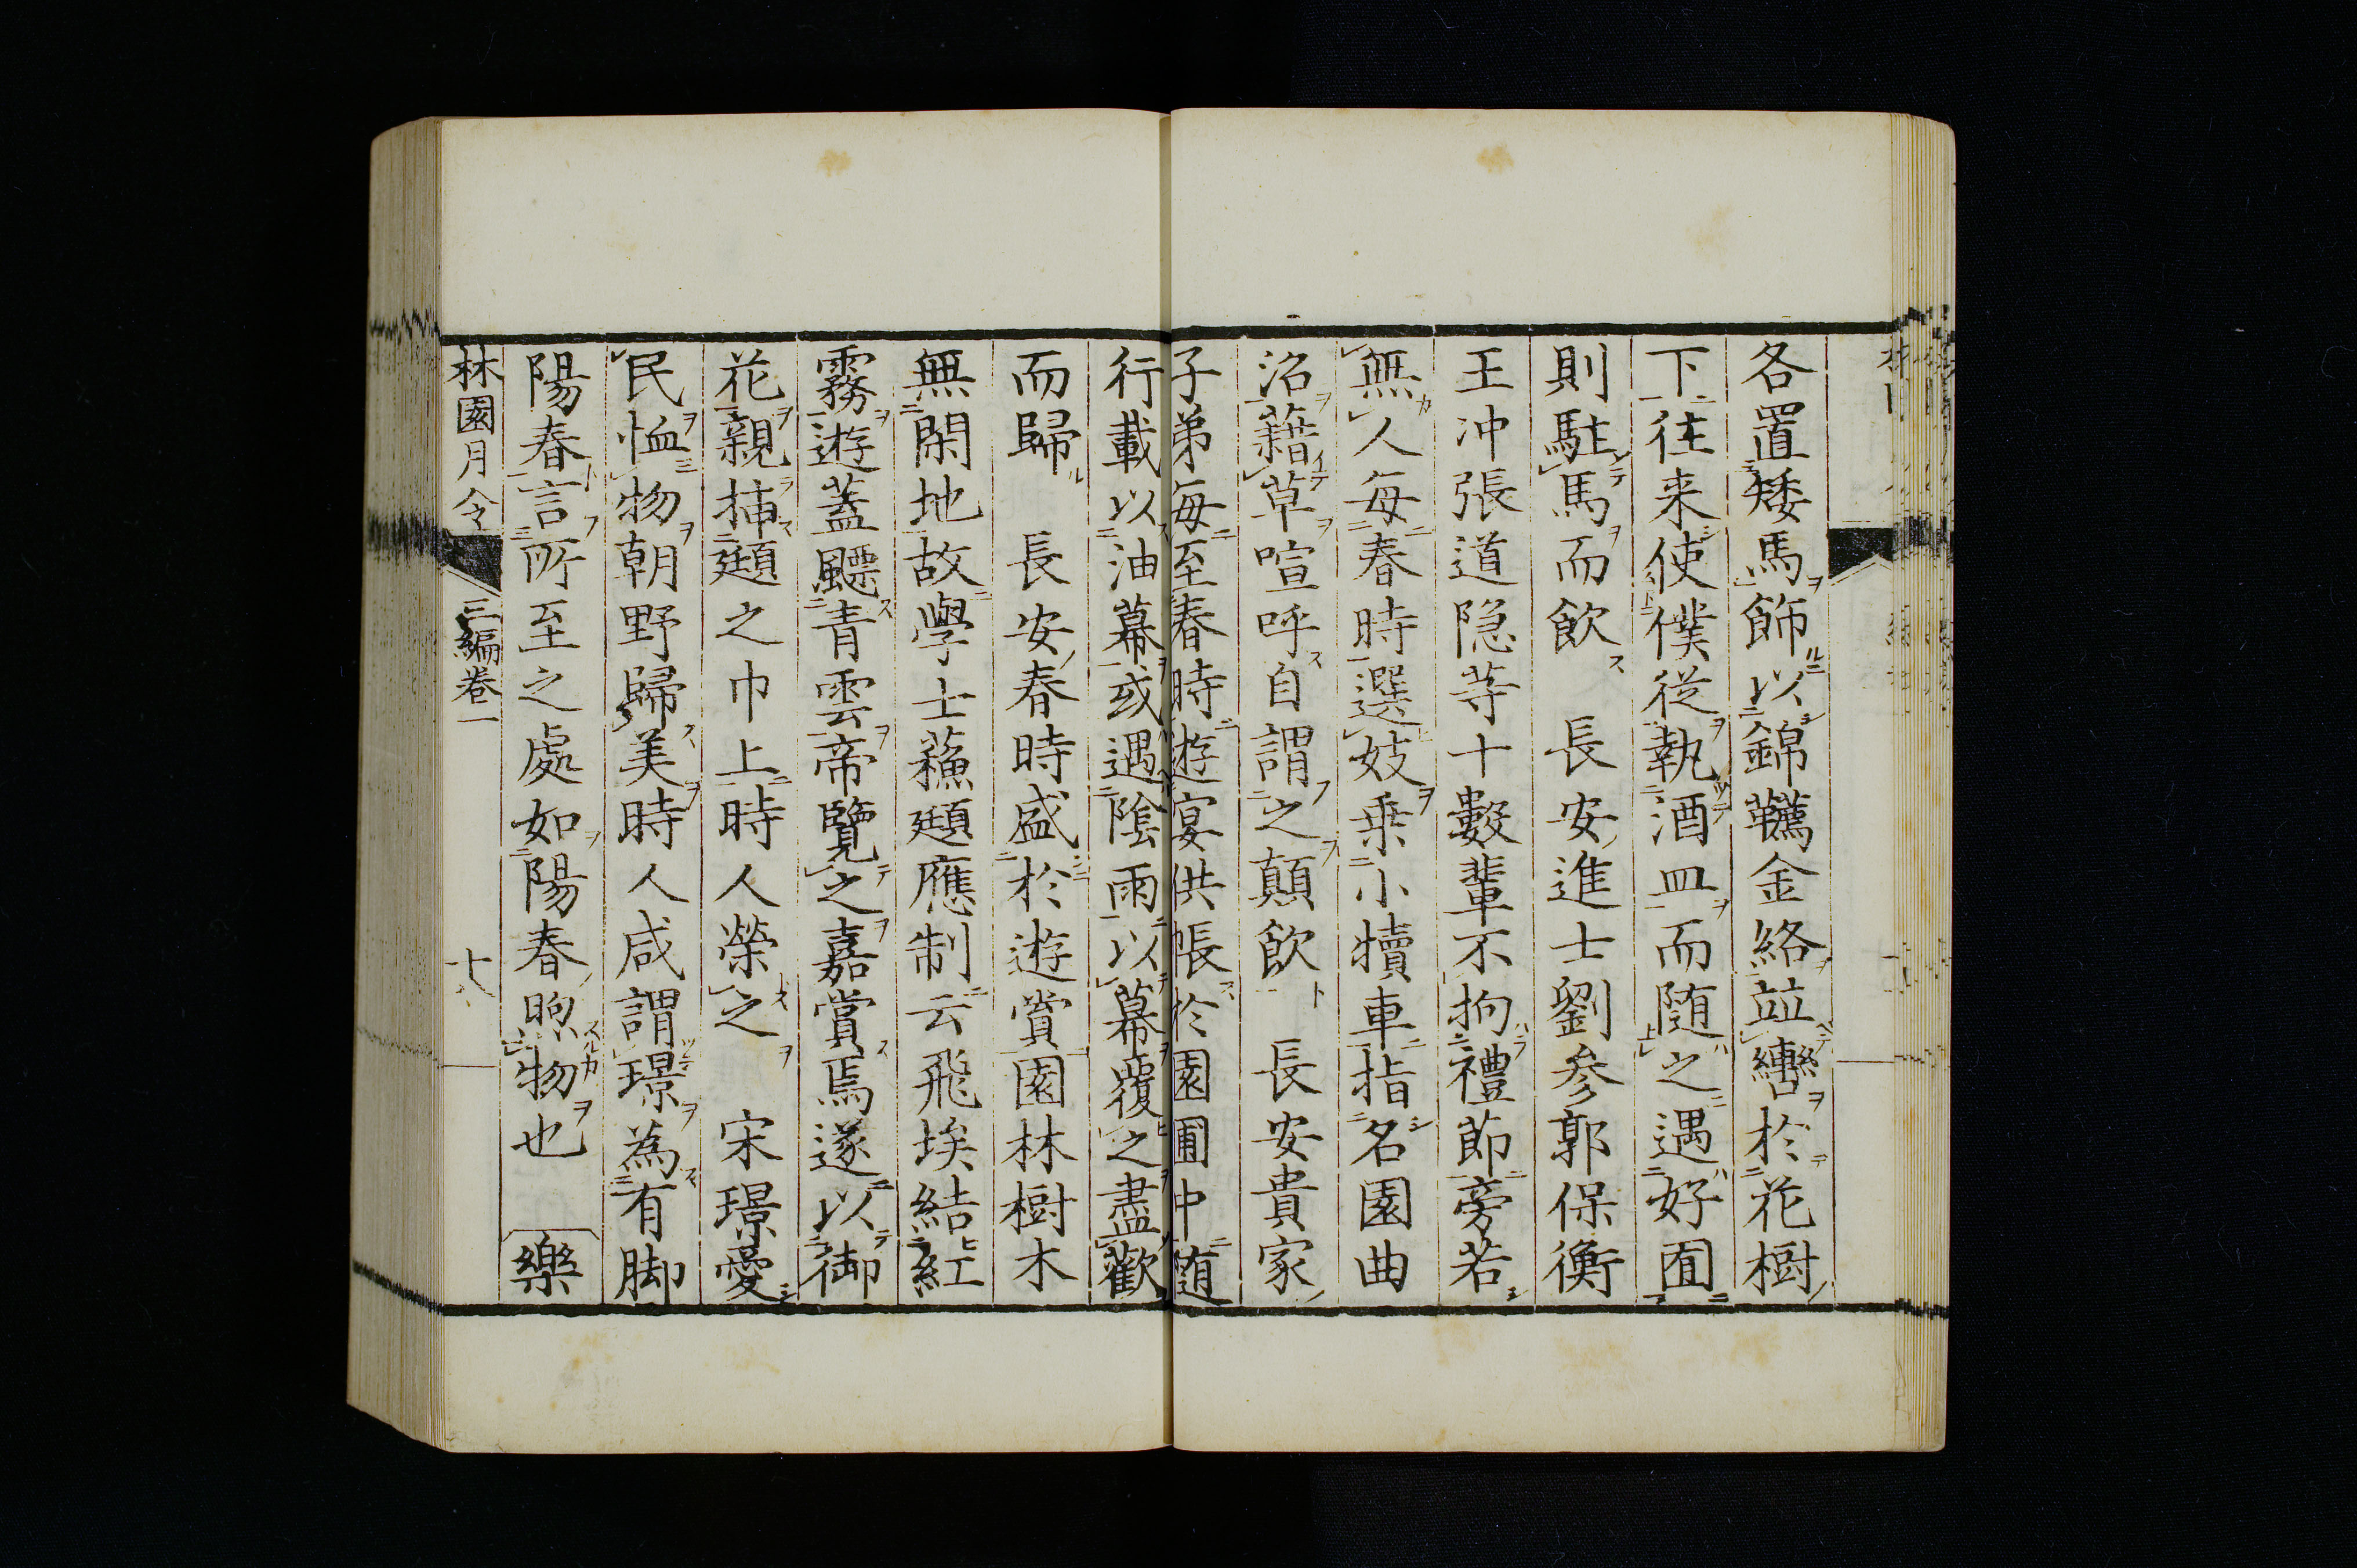 各置矮馬飾以錦韀金絡竝轡於花樹
下往来使僕従執酒皿而随之遇好囿
則駐馬而飲　長安進士劉参郭保衡
王冲張道隠等十數輩不拘禮節旁若
無人毎春時選妓乗小犢車指名園曲
沼藉草喧呼自謂之顛飲　長安貴家
子弟毎至春時遊宴供帳於園圃中随
行載以油幕或遇陰雨以幕覆之盡歡
而歸　長安春時盛於遊賞園林樹木
無閑地故學士蘓頲應制云飛埃結紅
霧遊蓋飃青雲帝覽之嘉賞焉遂以御
花親挿頲之巾上時人榮之　宋璟愛
民恤物朝野歸美時人咸謂璟為有脚
陽春言所至之處如陽春煦物也　樂
林園月令　三編巻一